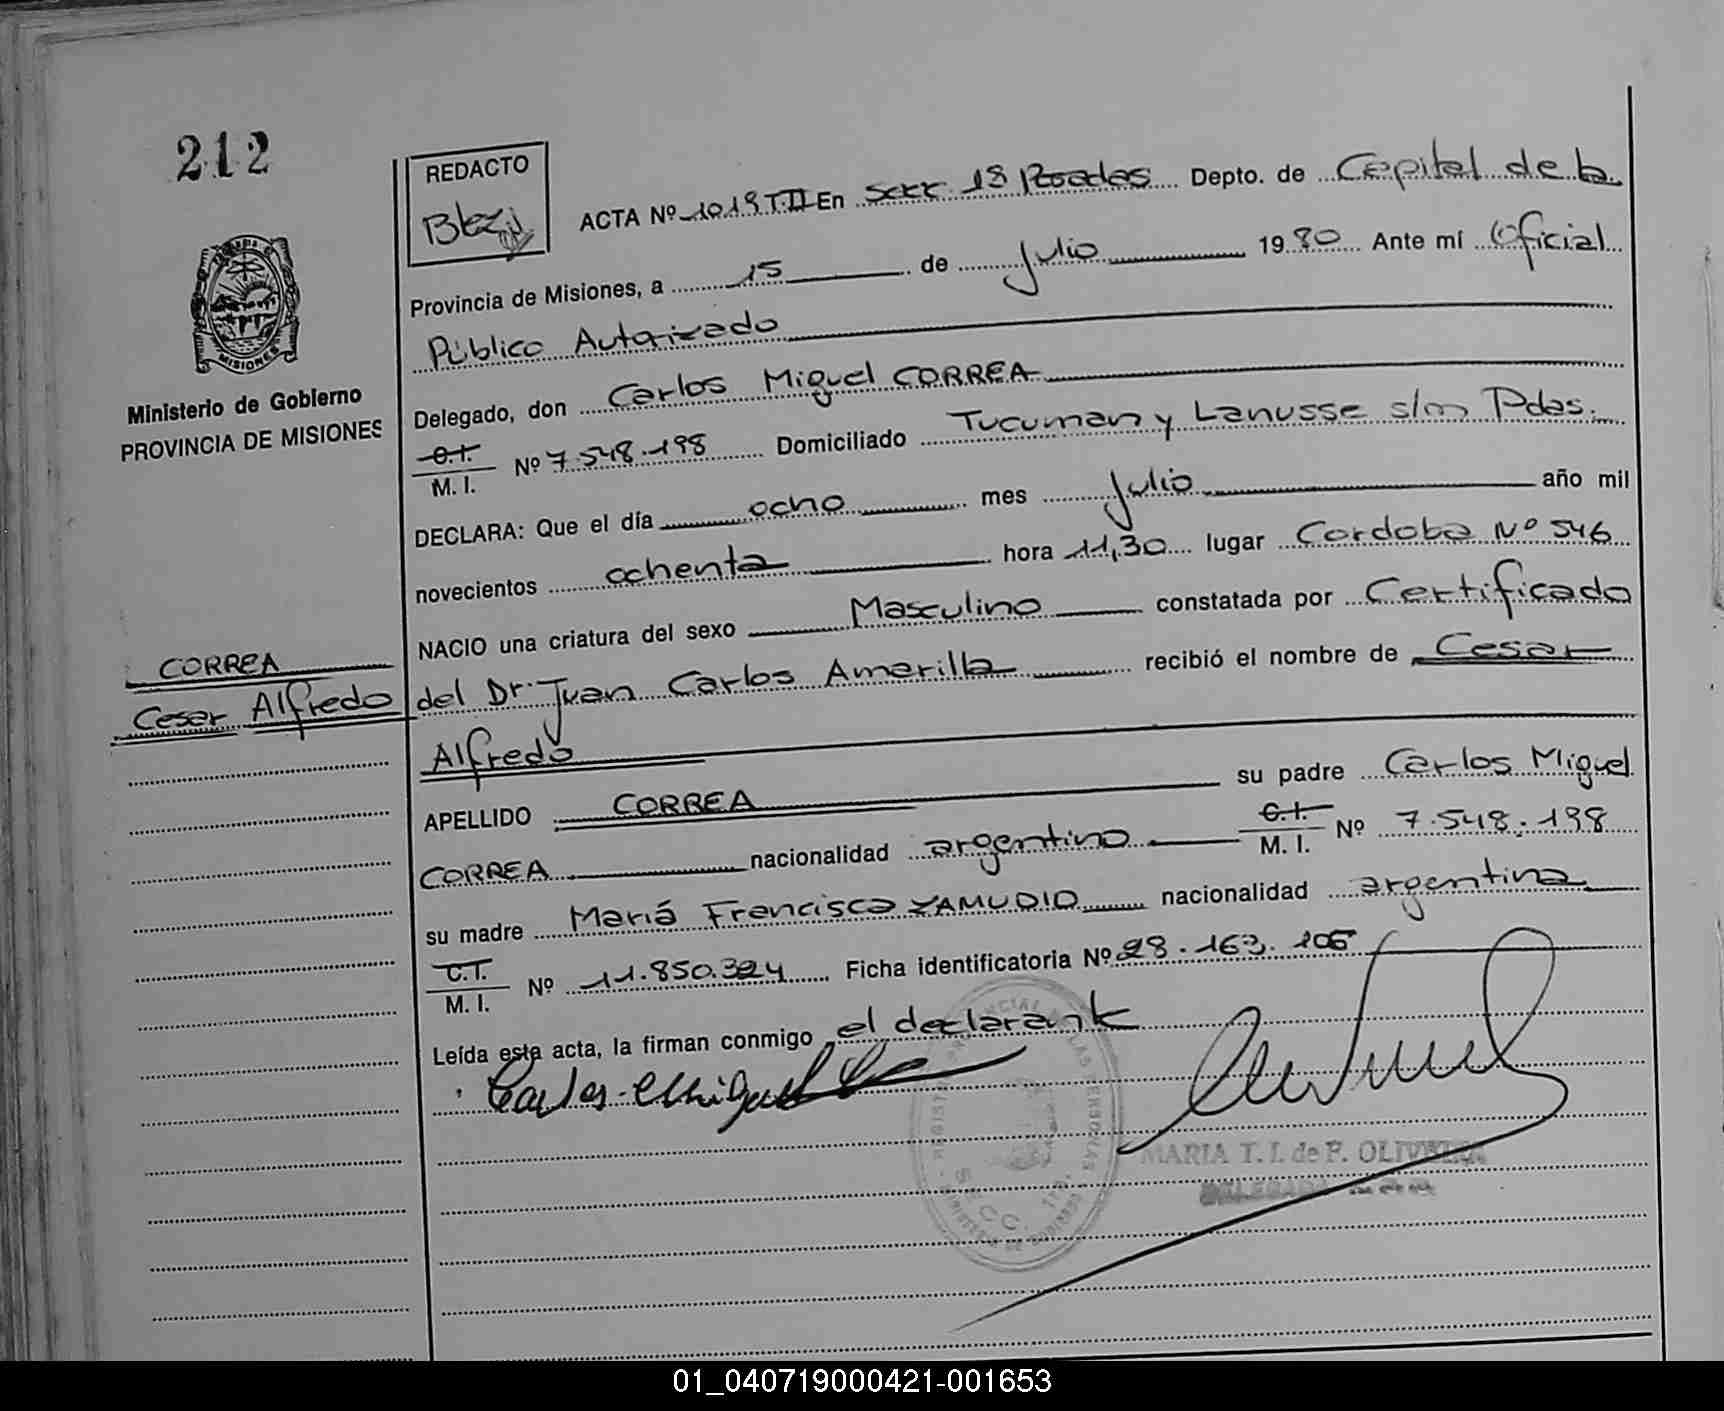 212
REDACTO
ACTA Nº 1019 T.II En Secc 1ª Posadas Depto. de Capital de la
Provincia de Misiones, a 15 de Julio 1980 Ante mí Oficial
Público Autorizado
Delegado, don Carlos Miguel CORREA
C.I. M. I. Nº 7.548.198 Domiciliado Tucuman y Lanusse s/n Pdas.
DECLARA: Que el día ocho mes Julio año mil
novecientos ochenta hora 11,30 lugar Cordoba Nº 546
NACIO una criatura del sexo Masculino constatada por Certificado
del Dr. Juan Carlos Amarilla recibió el nombre de Cesar
Alfredo
APELLIDO CORREA su padre Carlos Miguel
CORREA nacionalidad argentino C.I. M. I. Nº 7.548.198
su madre Mariá Francisca ZAMUDIO nacionalidad argentina
C.I. M. I. Nº 11.850.324 Ficha identificatoria Nº 28.163.106
Leída esta acta, la firman conmigo el declarante
Carlos Miguel
MARIA T. I. de F. OLIVEIRA
DELEGADA
SECC. 1ra.
MISIONES
Ministerio de Gobierno
PROVINCIA DE MISIONES
CORREA
Cesar Alfredo
01_040719000421-001653